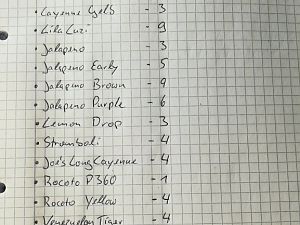 • Cayenne Gelb - 3
• Lila Luzi - 9
• Jalapeno - 3
• Jalapeno Early - 5
• Jalapeno Brown - 9
• Jalapeno Purple - 6
• Lemon Drop - 3
• Stromboli - 4
• Joe's Long Cayenne - 4
• Rocoto P360 - 1
• Rocoto Yellow - 4
• Venezuelan Tiger - 4